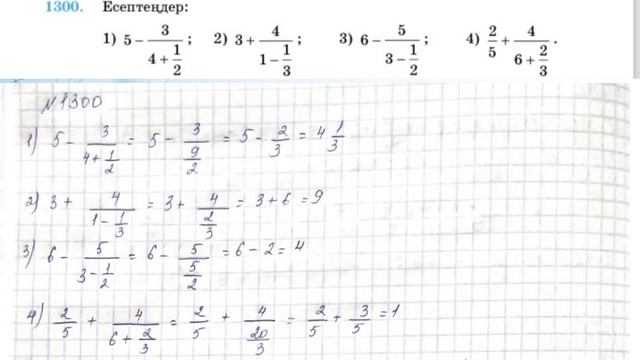 1300. Есептеңдер:
1) 5 − 3/(4 + 1/2); 2) 3 + 4/(1 − 1/3); 3) 6 − 5/(3 − 1/2); 4) 2/5 + 4/(6 + 2/3).
№1300
1) 5 − 3/(4 + 1/2) = 5 − 3/(9/2) = 5 − 2/3 = 4 1/3
2) 3 + 4/(1 − 1/3) = 3 + 4/(2/3) = 3 + 6 = 9
3) 6 − 5/(3 − 1/2) = 6 − 5/(5/2) = 6 − 2 = 4
4) 2/5 + 4/(6 + 2/3) = 2/5 + 4/(20/3) = 2/5 + 3/5 = 1